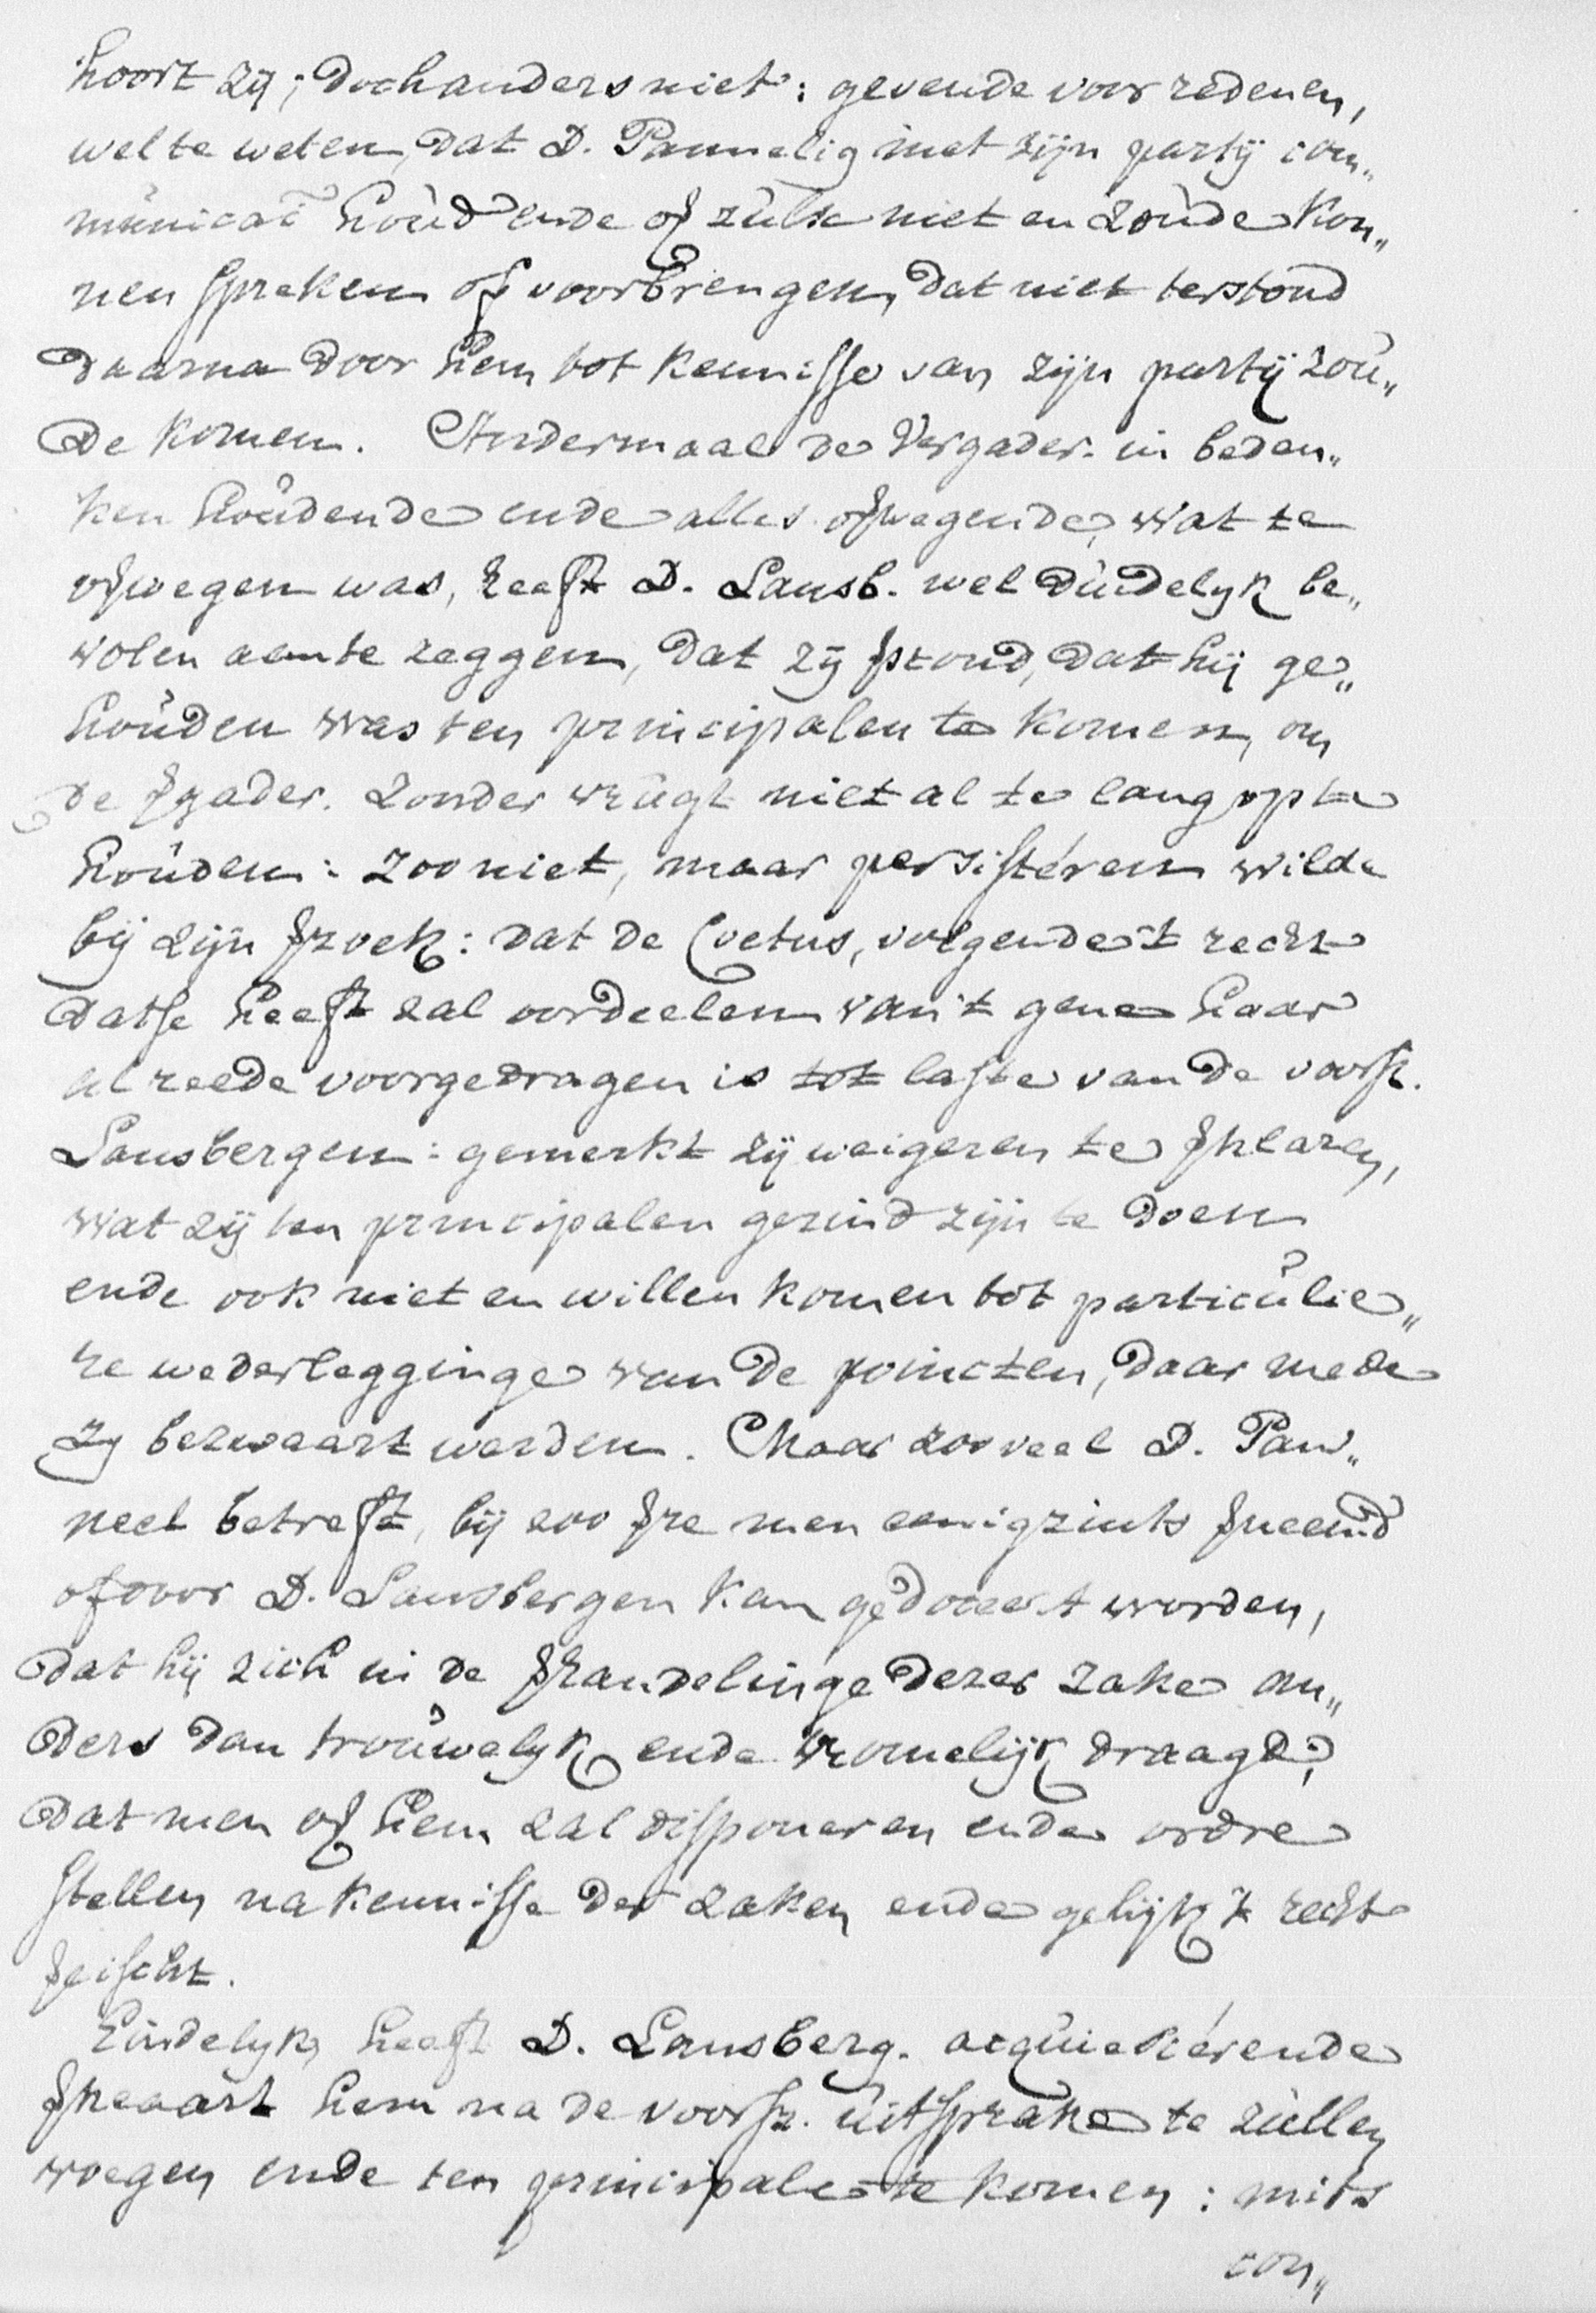 hoort zij; doch anders niet: gevende voor redenen,
wel te weten, dat D. Pannelig met zijn partij com„
municaõ houd ende of zulx niet en zoude kon„
nen spreken of voorbrengen, dat niet terstond
daarna door hem tot kennisse van zijn partij zou„
de komen. Andermaal de Vergader. in beden„
ken houdende ende alles ofwegende, wat te
ofwegen was, heeft D. Lansb. wel duidelijk be„
volen aen te zeggen, dat zij stond, dat hij ge„
houden was ten principalen te komen, om
de vgader. zonder vrugt niet al te lang op te
houden: zoo niet, maar persistéren wilde
bij zijn vzoek: dat de Coetus, volgende 't recht
datse heeft zal oordeelen van 't gene haar
alreede voorgedragen is tot laste van de voorsz.
Lansbergen: gemerkt zij weigeren te vklaren,
wat zij ten principalen gezind zijn te doen
ende ook niet en willen komen tot particulie„
re wederlegginge van de poincten, daar mede
zij bezwaart werden. Maar zoo veel D. Pan„
neel betreft, bij zoo vre men eenigzints vneemd
of door D. Lansbergen kan gedoceert worden,
dat hij zich in de vhandelinge dezer zake an„
ders dan trouwelijk ende vromelijk draagd;
dat men of hem zal disponeren ende ordre
stellen na kennisse der zaken ende gelijk 't recht
veischt.
Eindelijk heeft D. Lansberg. acquiescérende
vklaart hem na de voorsz. uitsprake te zullen
voegen ende ten principale te komen: mits
con„